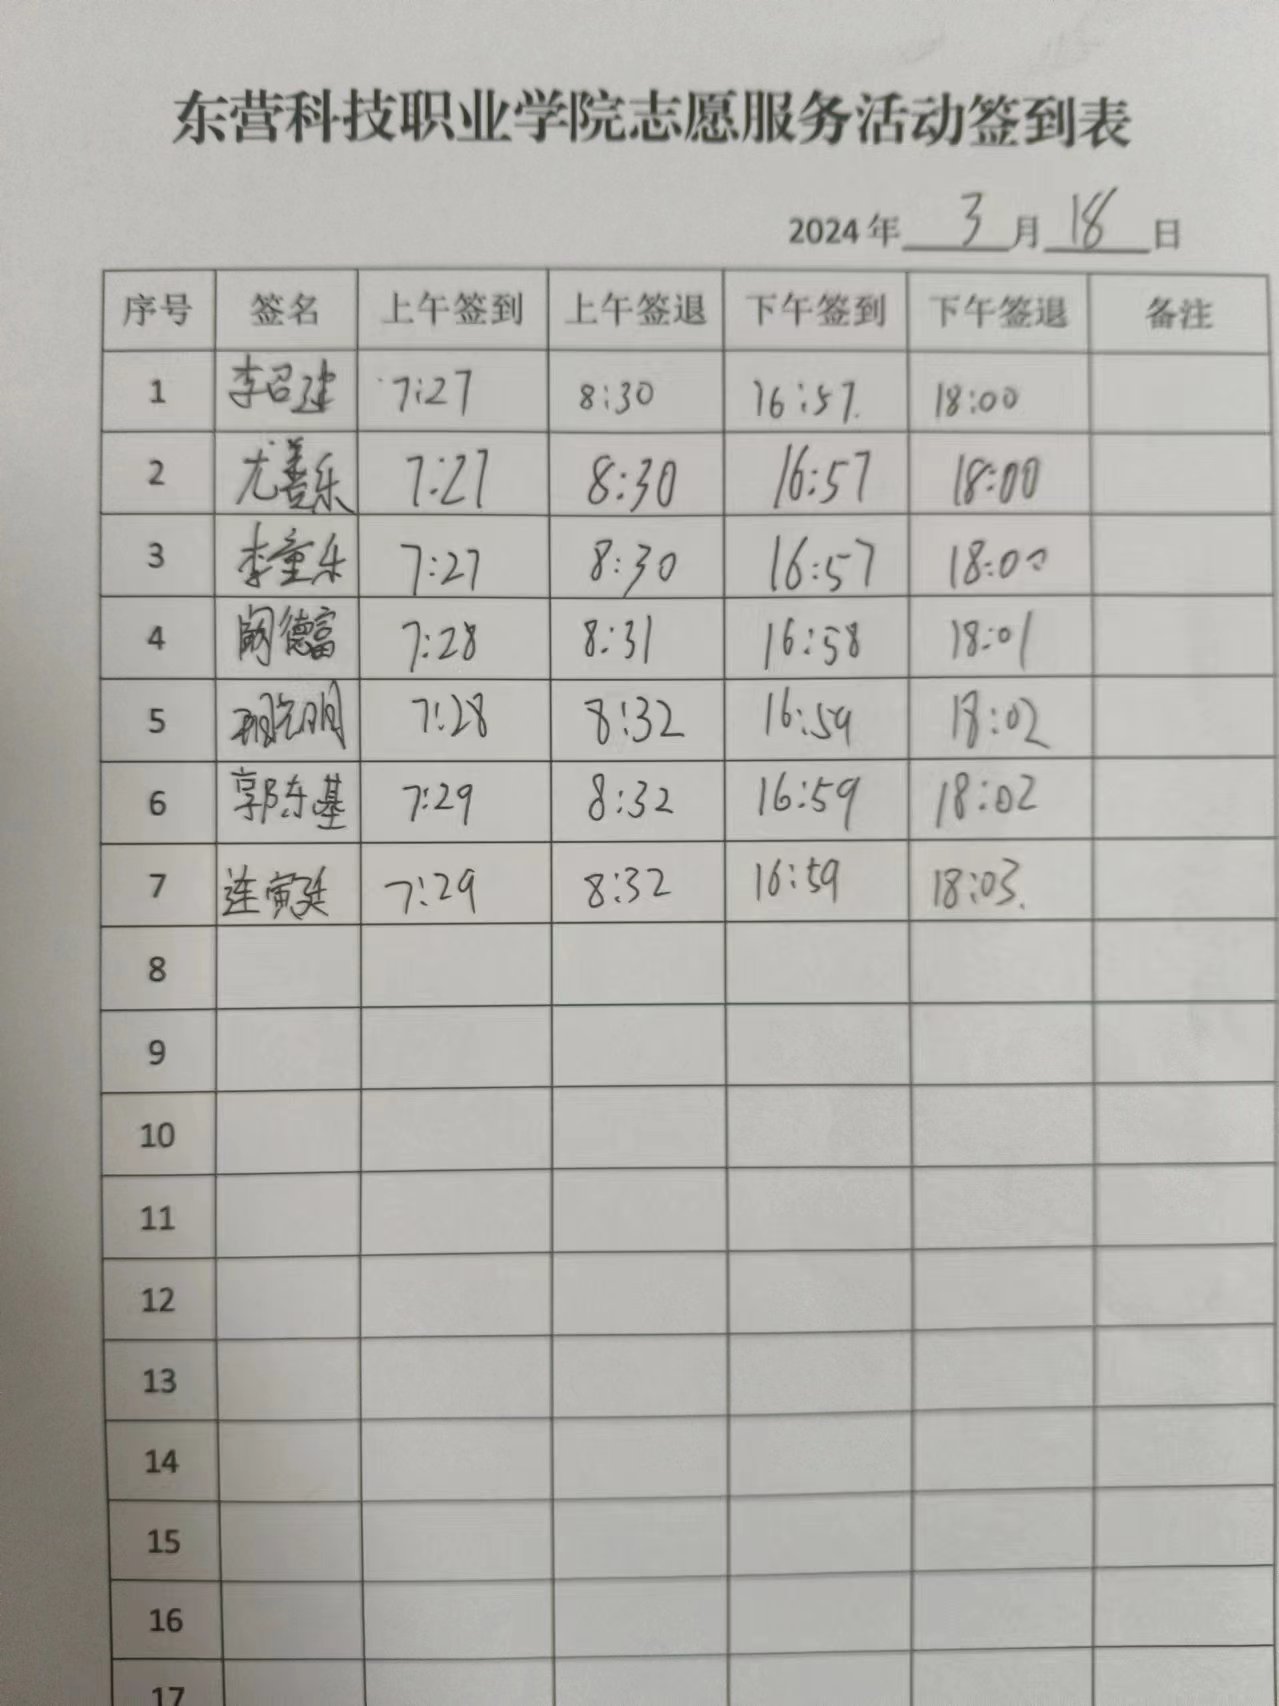 东营科技职业学院志愿服务活动签到表
2024 年 3 月 18 日
序号 签名 上午签到 上午签退 下午签到 下午签退 备注
1 李召建 7:27 8:30 16:57. 18:00
2 尤善乐 7:27 8:30 16:57 18:00
3 李童乐 7:27 8:30 16:57 18:00
4 德富 7:28 8:31 16:58 18:01
5 明 7:28 8:32 16:59 18:02
6 郭东基 7:29 8:32 16:59 18:02
7 连寅廷 7:29 8:32 16:59 18:03.
8
9
10
11
12
13
14
15
16
17